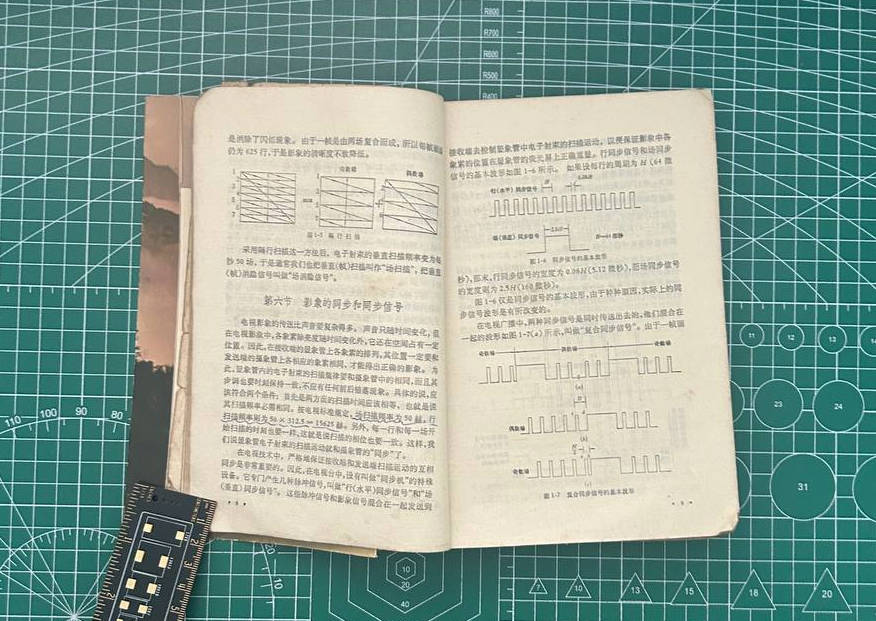 是消除了闪烁现象。由于一帧是由两场复合而成，所以每帧
仍为625行，于是影象的清晰度不致降低。
奇数场
偶数场
图1-5 隔行扫描
采用隔行扫描这一方法后，电子射束的垂直扫描频率变为每
秒50场，于是通常我们也把垂直(帧)扫描叫作“场扫描”，把垂直
(帧)消隐信号叫做“场消隐信号”。
第六节 影象的同步和同步信号
电视影象的传送比声音要复杂得多。声音只随时间变化，但
在电视影象中，各象素除亮度随时间变化外，它还在空间占有一定
位置。因此，在接收端的显象管上各象素的排列，其位置一定要和
发送端的摄象管上各相应的象素相同，才能得出正确的影象。为
此，显象管内的电子射束的扫描规律要和摄象管中的相同，而且其
步调也要时刻保持一致，不应有任何前后错落现象。具体的说，应
该符合两个条件：首先是两方面的扫描时间应该相等，也就是说
其扫描频率必需相同。按电视标准规定，场扫描频率为50赫，行
扫描频率则为50×312.5=15625赫。另外，每一行和每一场开
始扫描的时刻也要一样，这就是说扫描的相位也要一致。这样，我
们说显象管电子射束的扫描运动就和摄象管的“同步”了。
在电视技术中，严格地保证接收端和发送端扫描运动的互相
同步是非常重要的。因此，在电视台中，设有叫做“同步机”的特殊
设备。它专门产生几种脉冲信号，叫做“行(水平)同步信号”和“场
(垂直)同步信号”。这些脉冲信号和影象信号混合在一起发送到
· 8 ·
接收端去控制显象管中电子射束的扫描运动，以便保证影象中各
象素的位置在显象管的荧光屏上正确重显。行同步信号和场同步
信号的基本波形如图1-6所示。如果设每行的周期为H(64微
行(水平)同步信号
H
0.08H
场(垂直)同步信号
2.5H
H=64微秒
图1-6 同步信号的基本波形
秒)，那末，行同步信号的宽度为0.08H(5.12微秒)，而场同步信号
的宽度则为2.5H(160微秒)。
图1-6仅是同步信号的基本波形，由于种种原因，实际上的同
步信号波形是有所改变的。
在电视广播中，两种同步信号是同时传送出去的，他们混合在
一起的波形如图1-7(a)所示，叫做“复合同步信号”。由于一帧画
奇数场
偶数场
奇数场
(a)
偶数场
(b)
奇数场
图1-7 复合同步信号的基本波形
· 9 ·
R800
R700
R600
R500
R400
110
100
90
80
11
12
13
14
23
24
31
10
20
40
20
10
7
10
13
15
18
20